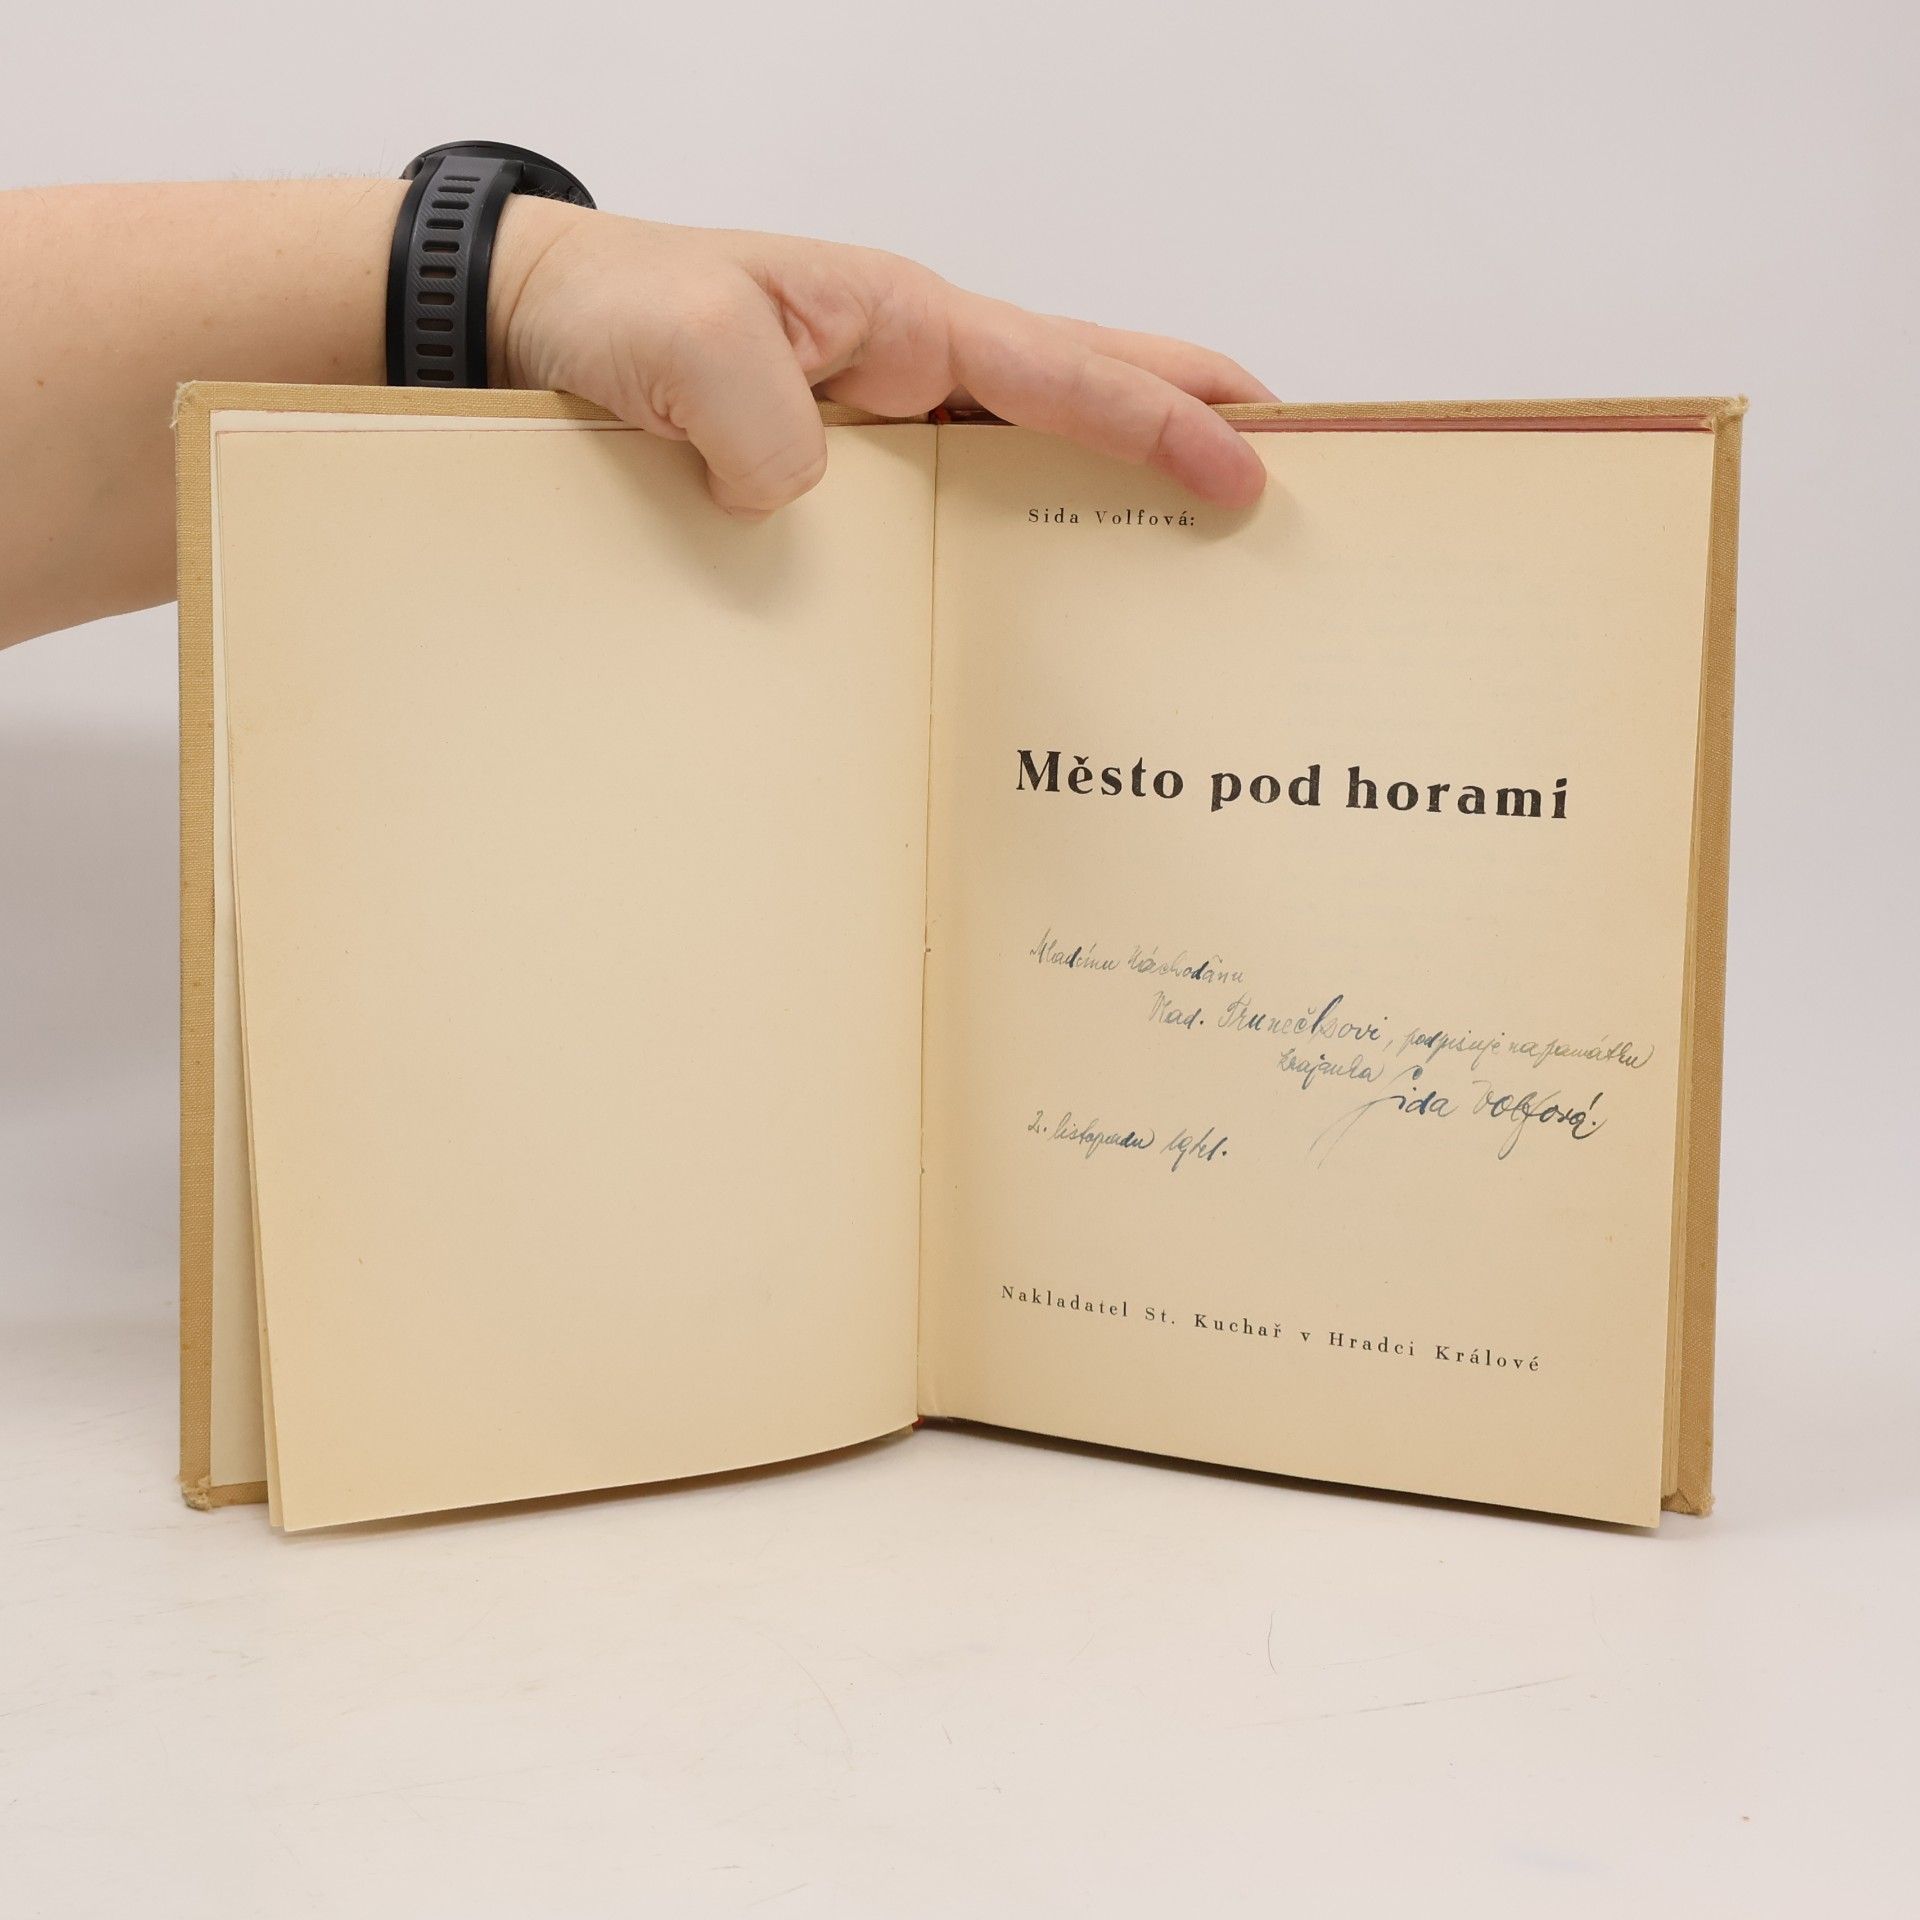 Sida Volfová:
Město pod horami
Mladému Náchodánu
Vlad. Trunečkovi, podpisuje na památku
krajanka
Sida Volfová.
2. listopadu
Nakladatel St. Kuchař v Hradci Králové